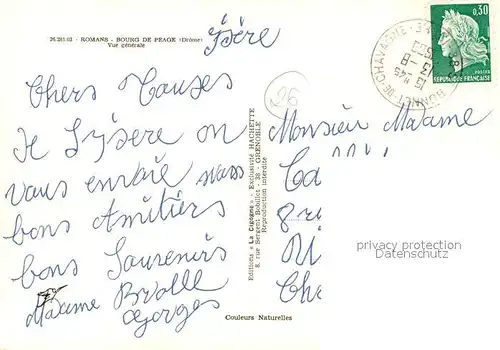 26.281.03 - ROMANS - BOURG DE PEAGE (Drôme)
Vue générale
Isère
Chers Touses
De L'Isère on
vous envoie nos
bons Amitiers
bons Souvenirs
Madame Brolle
Georges
26
Editions "La Cigogne" - Exclusivité HACHETTE
8, rue Sergent Bobillot, 38 - GRENOBLE
Reproduction interdite
Couleurs Naturelles
0,30
POSTES
REPUBLIQUE FRANÇAISE
DE CHAVAGNE
Monsieur Madame
Ca
8 r
Che
privacy protection
Datenschutz